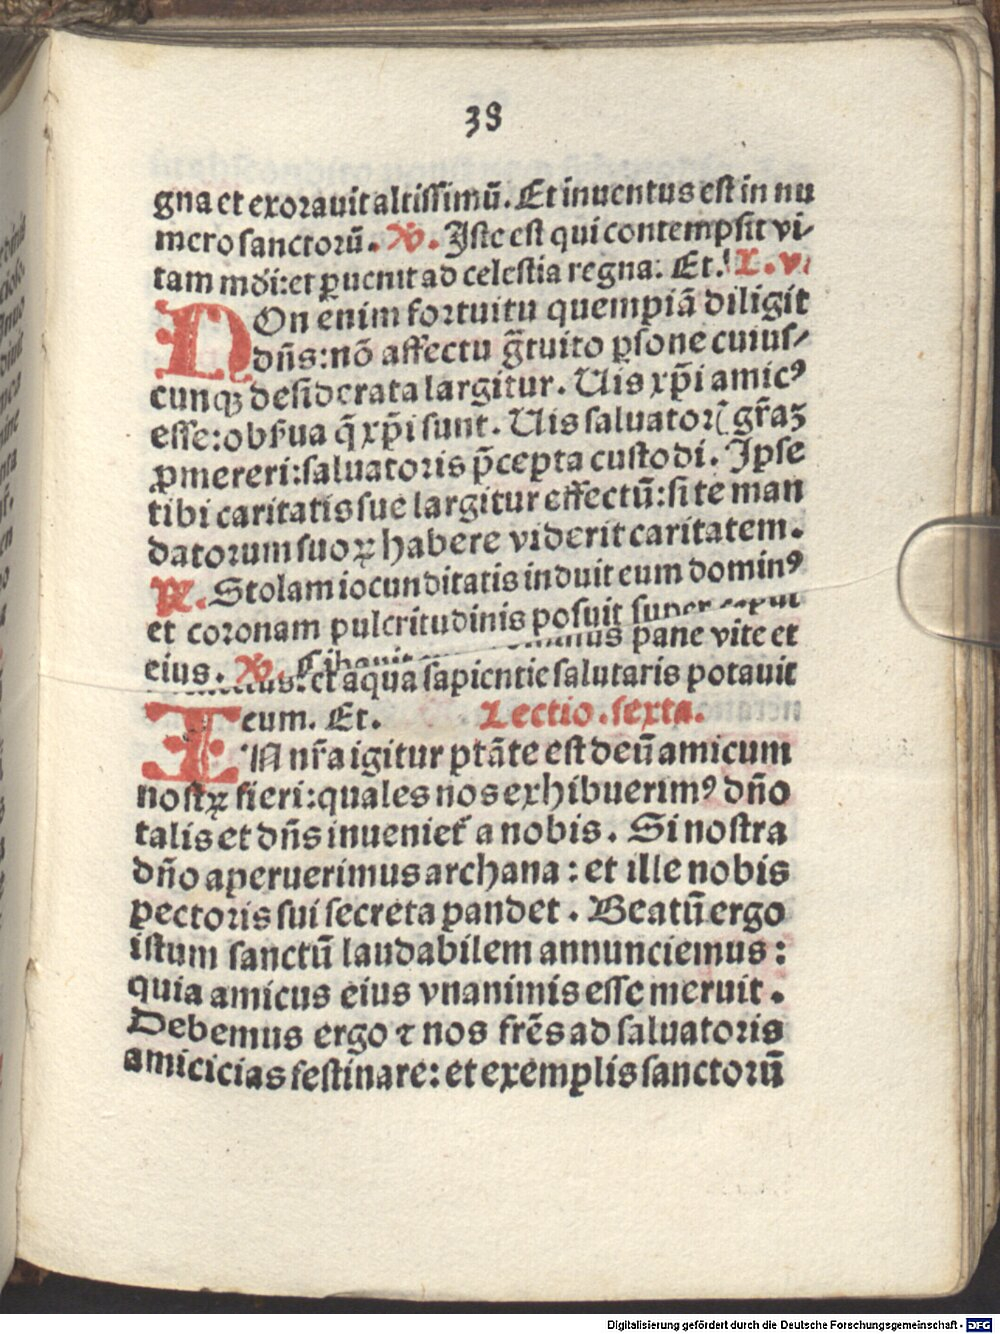 38
gna et exorauit altissimū. Et inuentus est in nu
mero sanctorū. V. Iste est qui contempsit vi-
tam mūdi: et ꝑuenit ad celestia regna. Et. L. v.
NOn enim fortuitu quempiā diligit
dn̄s: nō affectu g̃tuito ꝑsone cuius-
cunqꝫ desiderata largitur. Uis xp̄i amicꝰ
esse: obẜua q̄ xp̄i sunt. Uis saluatorꝭ gr̄aꝫ
ꝓmereri: saluatoris p̄cepta custodi. Ipse
tibi caritatis sue largitur effectū: si te man
datorum suoꝝ habere viderit caritatem.
R. Stolam iocunditatis induit eum dominꝰ
et coronam pulcritudinis posuit super caput
eius. V. Cibauit dominus pane vite et
et aqua sapientie salutaris potauit
eum. Et. Lectio. sexta.
IN nr̄a igitur ptāte est deū amicum
nostꝝ fieri: quales nos exhibuerimꝰ dn̄o
talis et dn̄s inuenieť a nobis. Si nostra
dn̄o aperuerimus archana: et ille nobis
pectoris sui secreta pandet. Beatū ergo
istum sanctū laudabilem annunciemus:
quia amicus eius vnanimis esse meruit.
Debemus ergo ⁊ nos frēs ad saluatoris
amicicias festinare: et exemplis sanctorū
Digitalisierung gefördert durch die Deutsche Forschungsgemeinschaft - DFG